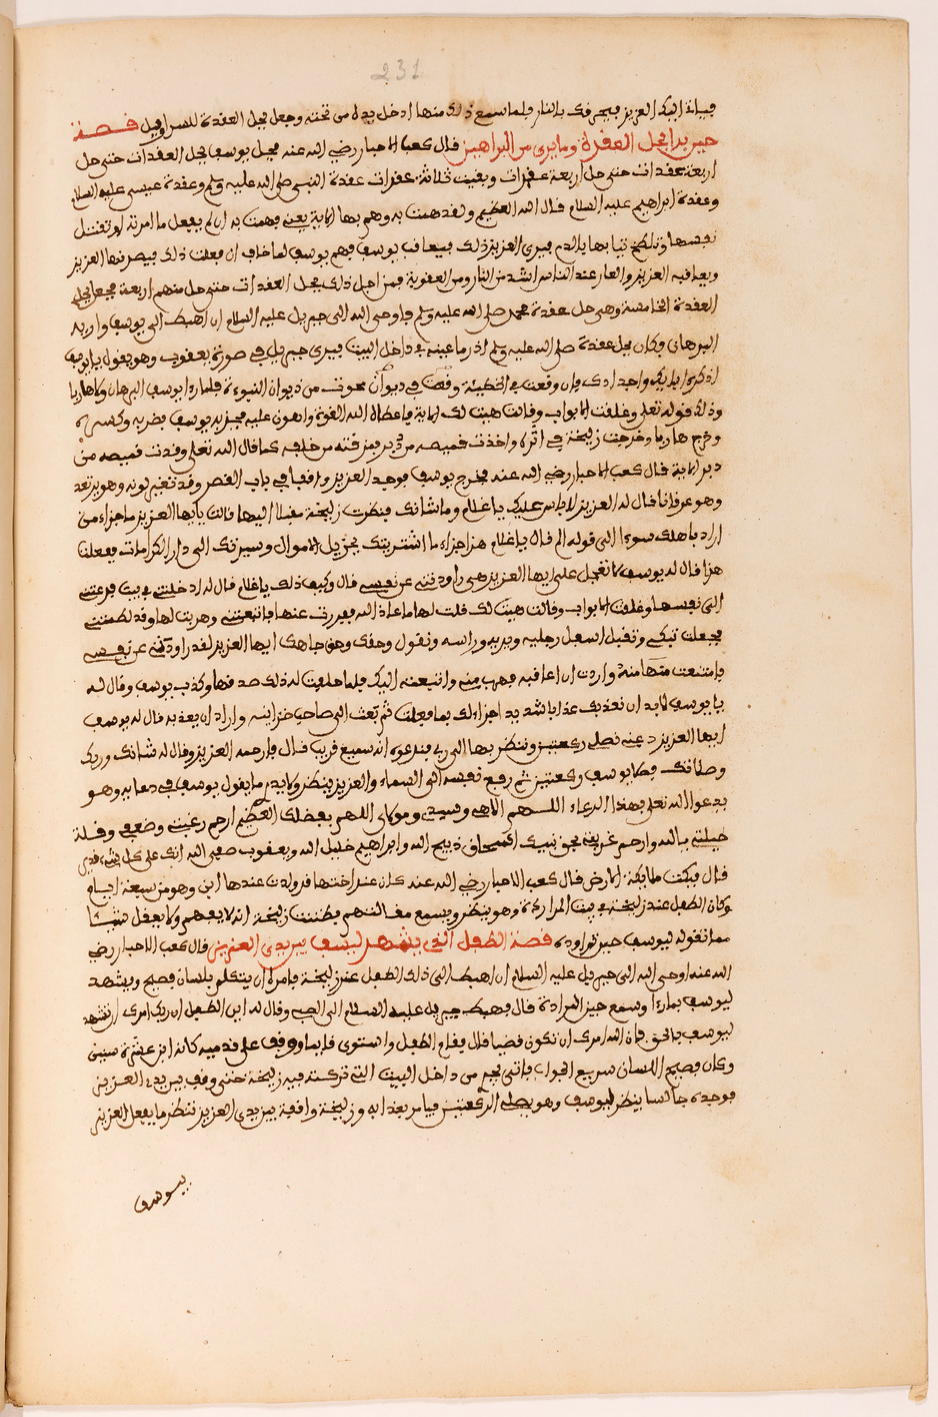 231
فياة اليك العزيز فيحرقك بالنار فلما سمع ذلك منها ادخل يده من تحته وجعل يحل العقدة للسراويل قصة
حين بدا بحل العقدة وما يرى من البراهين قال كعب الاحبار رضي الله عنه فحل يوسف يحل العقدات حتى حل
اربعة عقدات حتى حل اربعة عقدات وبقيت ثلاثة عقدات عقدة النبي صلى الله عليه وسلم وعقدة عيسى عليه السلام
وعقدة ابراهيم عليه السلام قال الله العظيم ولقد همت به وهم بها الاية يعني همت به ان لم يفعل ما امرته ان تقتل
نفسها وتلطخ ثيابها بالدم فيرى العزيز ذلك فيعاقب يوسف فهم يوسف لما خاف ان فعلت ذلك فيصرفها العزيز
ويعاقبه العزيز والعار عند الناس اشد من النار ومن العقوبة فمن اجل ذلك يحل العقدات حتى حل منهم اربعة فجعل يحل
العقدة الخامسة وهي حل عقدة محمد صلى الله عليه وسلم فاوحى الله الى جبريل عليه السلام ان اهبط الى يوسف واريه
البرهان فكان يحل عقدة صلى الله عليه وسلم اذ رما عينه في داخل البيت فيرى جبريل في صورة يعقوب وهو يقول يا يوسف
اذكر ابا ابيك واجدادك فان وقعت في الخطيئة وقعت في ديوان محوت من ديوان النبوءة فلما رءا يوسف البرهان وكاهاربا
وذلك قوله تعلى وغلقت الابواب وقالت هيت لك الاية فاعطاه الله القوة واهون عليه فجز به يوسف بضربه وكسره
وخرج هاربا وخرجت زليخة في اثره واخذت قميصه من دبر فمزقته من خلفه كما قال الله تعلى وقدت قميصه من
دبر الاية قال كعب الاحبار رضي الله عنه فخرج يوسف فوجد العزيز واقفا في باب القصر وقد تغير لونه وهو يرتعد
وهو عرقانا فقال له العزيز لا باس عليك يا غلام وما شانك فنظرت زليخة مقبلا اليها قالت يا ايها العزيز ما جزاء من
اراد باهلك سوءا الى قوله اليم قال يا غلام هذا جزاء ما اشتريتك بجزيل الاموال وسيرتك الى دار الكرامات فعلت
هذا فقال له يوسف لا تعجل علي ايها العزيز هي راودتني عن نفسي قال وكيف ذلك يا غلام قال له ادخلتني في بيت فرعتني
الى نفسها وغلقت الابواب وقالت هيت لك قلت لها معاذ الله ففررت عنها فاتبعتني وهربت لها وقد لطمتني
فجعلت تبكي وتقبل اسفل رجليه ويديه وراسه وتقول وحقك وحق جاهك ايها العزيز لقد راودني عن نفسي
فامتنعت منها منه واردت ان اعاقبه فهرب مني واتبعته اليك فلما حلفت له ذلك صدقها وكذب يوسف وقال له
يا يوسف لا بد ان نعذبك عذابا شديدا جزاء لك بما فعلت ثم بعث الى صاحب خزاينه واراد ان يعذبه قال له يوسف
ايها العزيز دعني نصلي ركعتين وننظر بها الى ربي فندعوه انه سميع قريب قال فارحمه العزيز وقال له شانك وربك
وصلاتك فصلا يوسف ركعتين ثم رفع نفسه الى السماء والعزيز ينظر ولا يدري ما يقول يوسف في دعايه وهو
يدعوا الله تعلى بهذا الدعاء اللهم الاهي وسيدي ومولاي اللهم بفضلك العظيم ارحم رغبتي وضعفي وقلة
حيلتي يا الله وارحم غربتي بحق نبيك اسحاق ذبيح الله وابراهيم خليل الله ويعقوب صفي الله انك على كل شيء قدير
قال فبكت ملايكة الارض قال كعب الاحبار رضي الله عنه كان عند اختها قد ولدت عندها ابن وهو من سبعة ايام
وكان الطفل عند زليخة في بيت المراودة وهو ينظر ويسمع مقالتهم فظنت زليخة انه لا يفهم ولا يعقل شيئا
مما تقوله ليوسف حين تراوده قصة الطفل الذي يشهد ليوسف بين يدي العزيز قال كعب الاحبار رضي
الله عنه اوحى الله الى جبريل عليه السلام ان اهبط الى ذلك الطفل عند زليخة فامره ان يتكلم بلسان فصيح ويشهد
ليوسف بما رءا وسمع حين المراودة قال فهبط جبريل عليه السلام الى الصبي وقال له ابن الطفل ان ربك امرك ان تشهد
ليوسف بالحق فان الله امرك ان تكون فضيا قال فقام الطفل واستوى قايما ووقف على قدميه كانه ابن عشرة سنين
وكان فصيح اللسان سريع الجواب فاتى يجر من داخل البيت التي تركته فيه زليخة حتى وقف بين يدي العزيز
فوجده جالسا ينظر ليوسف وهو يصلي الركعتين فيامر بعذابه وزليخة واقفة بين يدي العزيز تنتظر ما يفعل العزيز
بيوسف